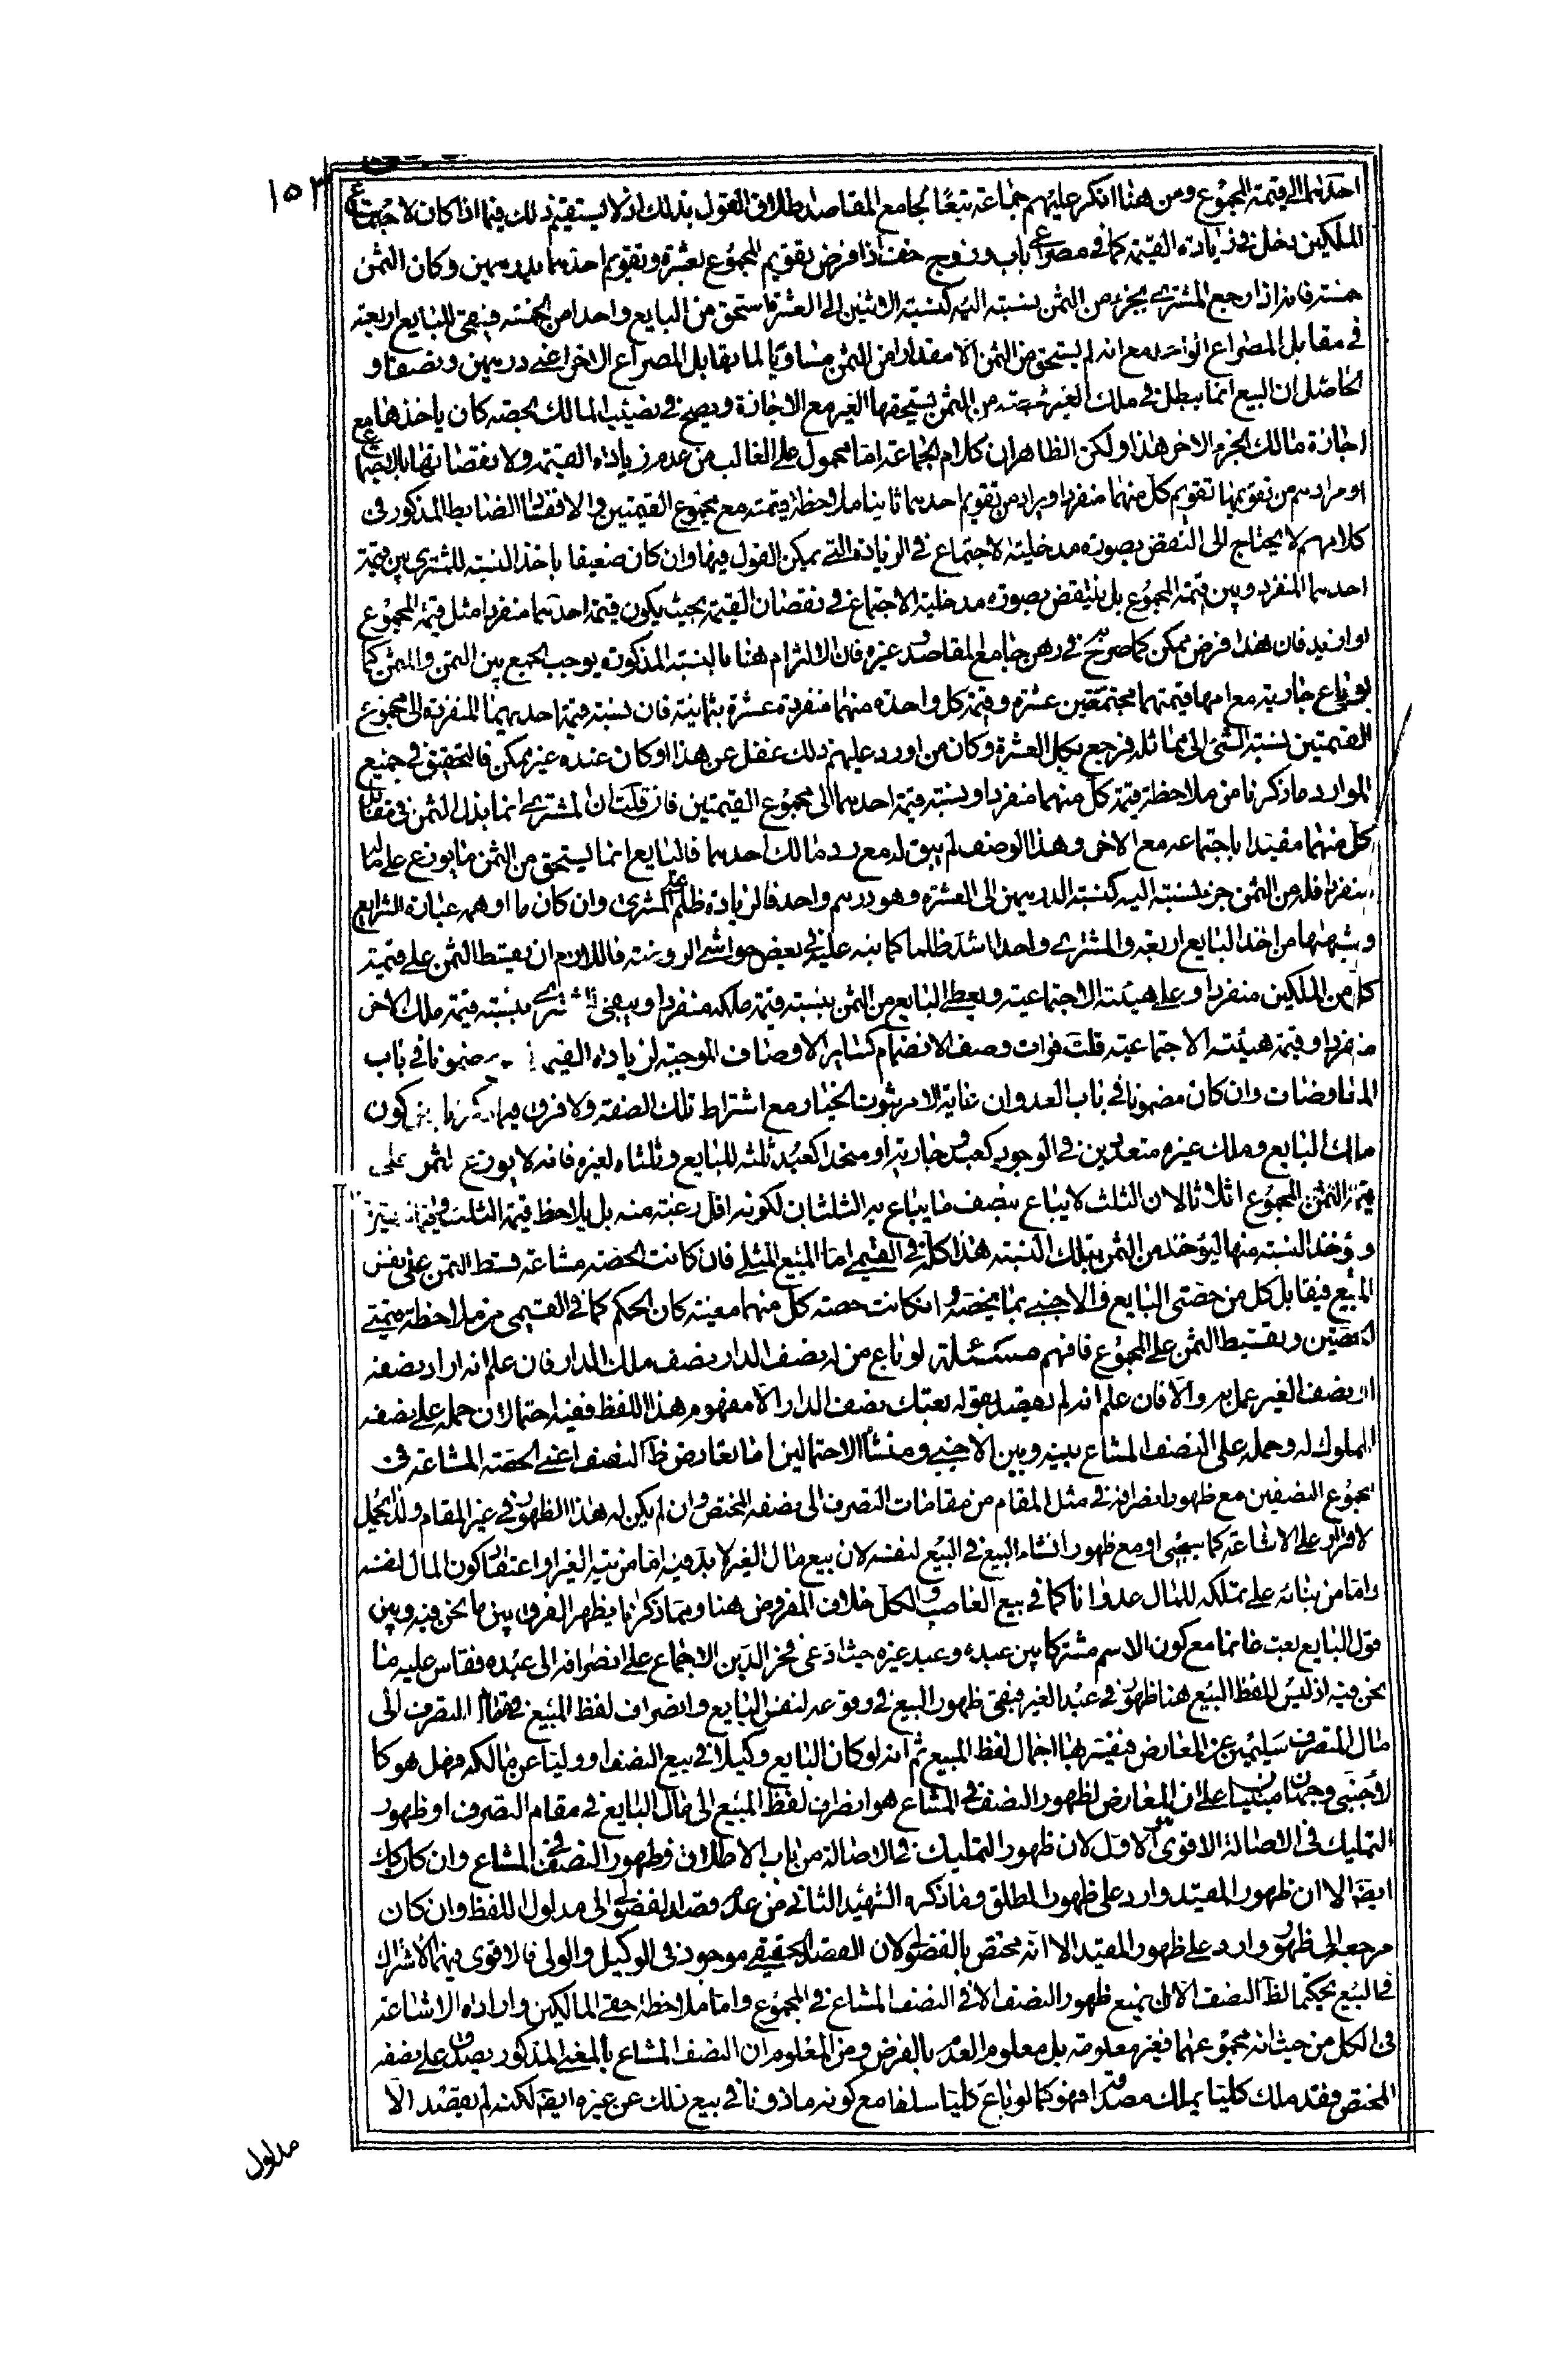 ١٥٣
احدهما الى قيمة المجموع ومن هنا انكر عليهم جماعة تبعًا لجامع المقاصد اطلاق القول بذلك اذ لا يستقيم ذلك فيما اذا كان لاجتماع
الملكين دخل في زيادة القيمة كما في مصراعى باب وزوج خف اذا فرض تقويم المجموع بعشرة وتقويم احدهما بدرهمين وكان الثمن
خمسة فانه اذا رجع المشترى بجزء من الثمن نسبته اليه كنسبة الاثنين الى العشرة استحق من البايع واحدا من الخمسة فيبقى للبايع اربعة
في مقابل المصراع الواحد مع انه لم يستحق من الثمن الا مقدارا من الثمن مساويًا لما يقابل المصراع الاخر اعنى درهمين ونصفا و
الحاصل ان البيع انما يبطل في ملك الغير بحصة من الثمن يستحقها الغير مع الاجازة ويصح في نصيب المالك بحصة كان ياخذها مع
اجازة مالك الجزء الاخر هذا ولكن الظاهر ان كلام الجماعة اما محمول على الغالب من عدم زيادة القيمة ولا نقصانها بالاجتماع
او مرادهم من تقويمهما تقويم كل منهما منفردا ويراد من تقويم احدهما ثانيا ملاحظة قيمته مع مجموع القيمتين والا ففساد الضابط المذكور في
كلامهم لا يحتاج الى النقض بصورة مدخلية الاجتماع في الزيادة التي يمكن القول فيها وان كان ضعيفا باخذ النسبة للمشترى بين قيمة
احدهما المنفرد وبين قيمة المجموع بل ينتقض بصورة مدخلية الاجتماع في نقصان القيمة بحيث يكون قيمة احدهما منفردا مثل قيمة المجموع
او ازيد فان هذا فرض ممكن كما صرح به في رهن جامع المقاصد وغيره فان الالتزام هنا بالنسبة المذكورة يوجب الجمع بين الثمن والمثمن كما
لو باع جارية مع امها قيمتهما مجتمعتين عشرة وقيمة كل واحدة منهما منفردة عشرة بثمانية فان نسبة قيمة احديهما المنفردة الى مجموع
القيمتين نسبة الشئ الى مماثله فرجع بكل العشرة وكان من اورد عليهم ذلك غفل عن هذا او كان عنده غير ممكن فالتحقيق في جميع
الموارد ما ذكرنا من ملاحظة قيمة كل منهما منفردا ونسبة قيمة احدهما الى مجموع القيمتين فان قلت ان المشترى انما بذل الثمن في مقابل
كل منهما مقيدا باجتماعه مع الاخر وهذا الوصف لم يبق له مع رد مالك احدهما فالبايع انما يستحق من الثمن ما يوزع على ماله
منفردا فله من الثمن جزء نسبته اليه كنسبة الدرهمين الى العشرة وهو درهم واحد فالزيادة ظلم على المشترى وان كان ما اوهمه عبارة الشرايع
وشبهها من اخذ البايع اربعة والمشترى واحدا اشد ظلما كما نبه عليه في بعض حواشى الروضة فاللازم ان يقسط الثمن على قيمة
كل من الملكين منفردا وعلى هيئته الاجتماعية ويعطى البايع من الثمن بنسبة قيمة ملكه منفردا ويبقى للمشترى بنسبة قيمة ملك الاخر
منفردا وقيمة هيئته الاجتماعية قلت فوات وصف الانضمام كساير الاوصاف الموجبة لزيادة القيمة ... مضمونا في باب
المعاوضات وان كان مضمونا في باب العدوان غاية الامر ثبوت الخيار مع اشتراط تلك الصفة ولا فرق فيما ذكرنا بين كون
ملك البايع وملك غيره متعددين في الوجود كعبد وجارية او متحدا كعبد ثلثه للبايع وثلثاه لغيره فانه لا يوزع الثمن على
قيمة المجموع اثلاثا لان الثلث لا يباع بنصف ما يباع به الثلثان لكونه اقل رغبة منه بل يلاحظ قيمة الثلث وقيمة الثلثين
ويؤخذ النسبة منهما ليؤخذ من الثمن بتلك النسبة هذا كله في القيمى اما المبيع المثلى فان كانت الحصة مشاعة قسط الثمن على نفس
المبيع فيقابل كل من حصتى البايع والاجنبى بما يخصه وان كانت حصة كل منهما معينة كان الحكم كما في القيمى من ملاحظة قيمتى
الحصتين وتقسيط الثمن على المجموع فافهم مسئلة لو باع من له نصف الدار نصف ملك الدار فان علم انه اراد نصفه
او نصف الغير عمل به والا فان علم انه لم يقصد بقوله بعتك نصف الدار الا مفهوم هذا اللفظ ففيه احتمالان حمله على نصفه
المملوك له وحمله على النصف المشاع بينه وبين الاجنبى ومنشأ الاحتمالين اما تعارض ظ النصف اعنى الحصة المشاعة في
مجموع النصفين مع ظهور انصرافه في مثل المقام من مقامات التصرف الى نصفه المختص وان لم يكن له هذا الظهور في غير المقام ولذا يحمل
الاقرار على الاشاعة كما سيجئ او مع ظهور انشاء البيع في البيع لنفسه لان بيع مال الغير لا بد فيه اما من نية الغير او اعتقاد كون المال لنفسه
واما من بنائه على تملكه للمال عدوانا كما في بيع الغاصب والكل خلاف المفروض هنا ومما ذكرنا يظهر الفرق بين ما نحن فيه وبين
قول البايع بعت غانما مع كون الاسم مشتركا بين عبده وعبد غيره حيث ادعى فخر الدين الاجماع على انصرافه الى عبده فقاس عليه ما
نحن فيه اذ ليس للفظ المبيع هنا ظهور في عبد الغير فيبقى ظهور البيع في وقوعه لنفس البايع وانصراف لفظ المبيع في مقام التصرف الى
مال المتصرف سليمين عن المعارض فيفسر بها اجمال لفظ المبيع ثم انه لو كان البايع وكيلا في بيع النصف او وليا عن مالكه فهل هو كا
لاجنبى وجهان مبنيان على ان المعارض لظهور النصف في المشاع هو انصراف لفظ المبيع الى مال البايع في مقام التصرف او ظهور
التمليك في الاصالة الاقوى هو الاول لان ظهور التمليك في الاصالة من باب الاطلاق وظهور النصف في المشاع وان كان كك
ايضا الا ان ظهور المقيد وارد على ظهور المطلق وما ذكره الشهيد الثانى من عدم قصد الفضولى الى مدلول اللفظ وان كان
مرجعه الى ظهور وارد على ظهور المقيد الا انه مختص بالفضولى لان القصد الحقيقى موجود في الوكيل والولى فالاقوى فيهما الاشتراك
في البيع تحكيما لظ النصف الا ان يمنع ظهور النصف الا في النصف المشاع في المجموع واما ملاحظة حقى المالكين وارادة الاشاعة
في الكل من حيث انه مجموعهما فغير معلومة بل معلوم العدم بالفرض ومن المعلوم ان النصف المشاع بالمعنى المذكور يصدق على نصفه
المختص فقد ملك كليا يملك مصداقه فهو كما لو باع كليا سلفا مع كونه ماذونا في بيع ذلك عن غيره ايضا لكنه لم يقصد الا
مدلول